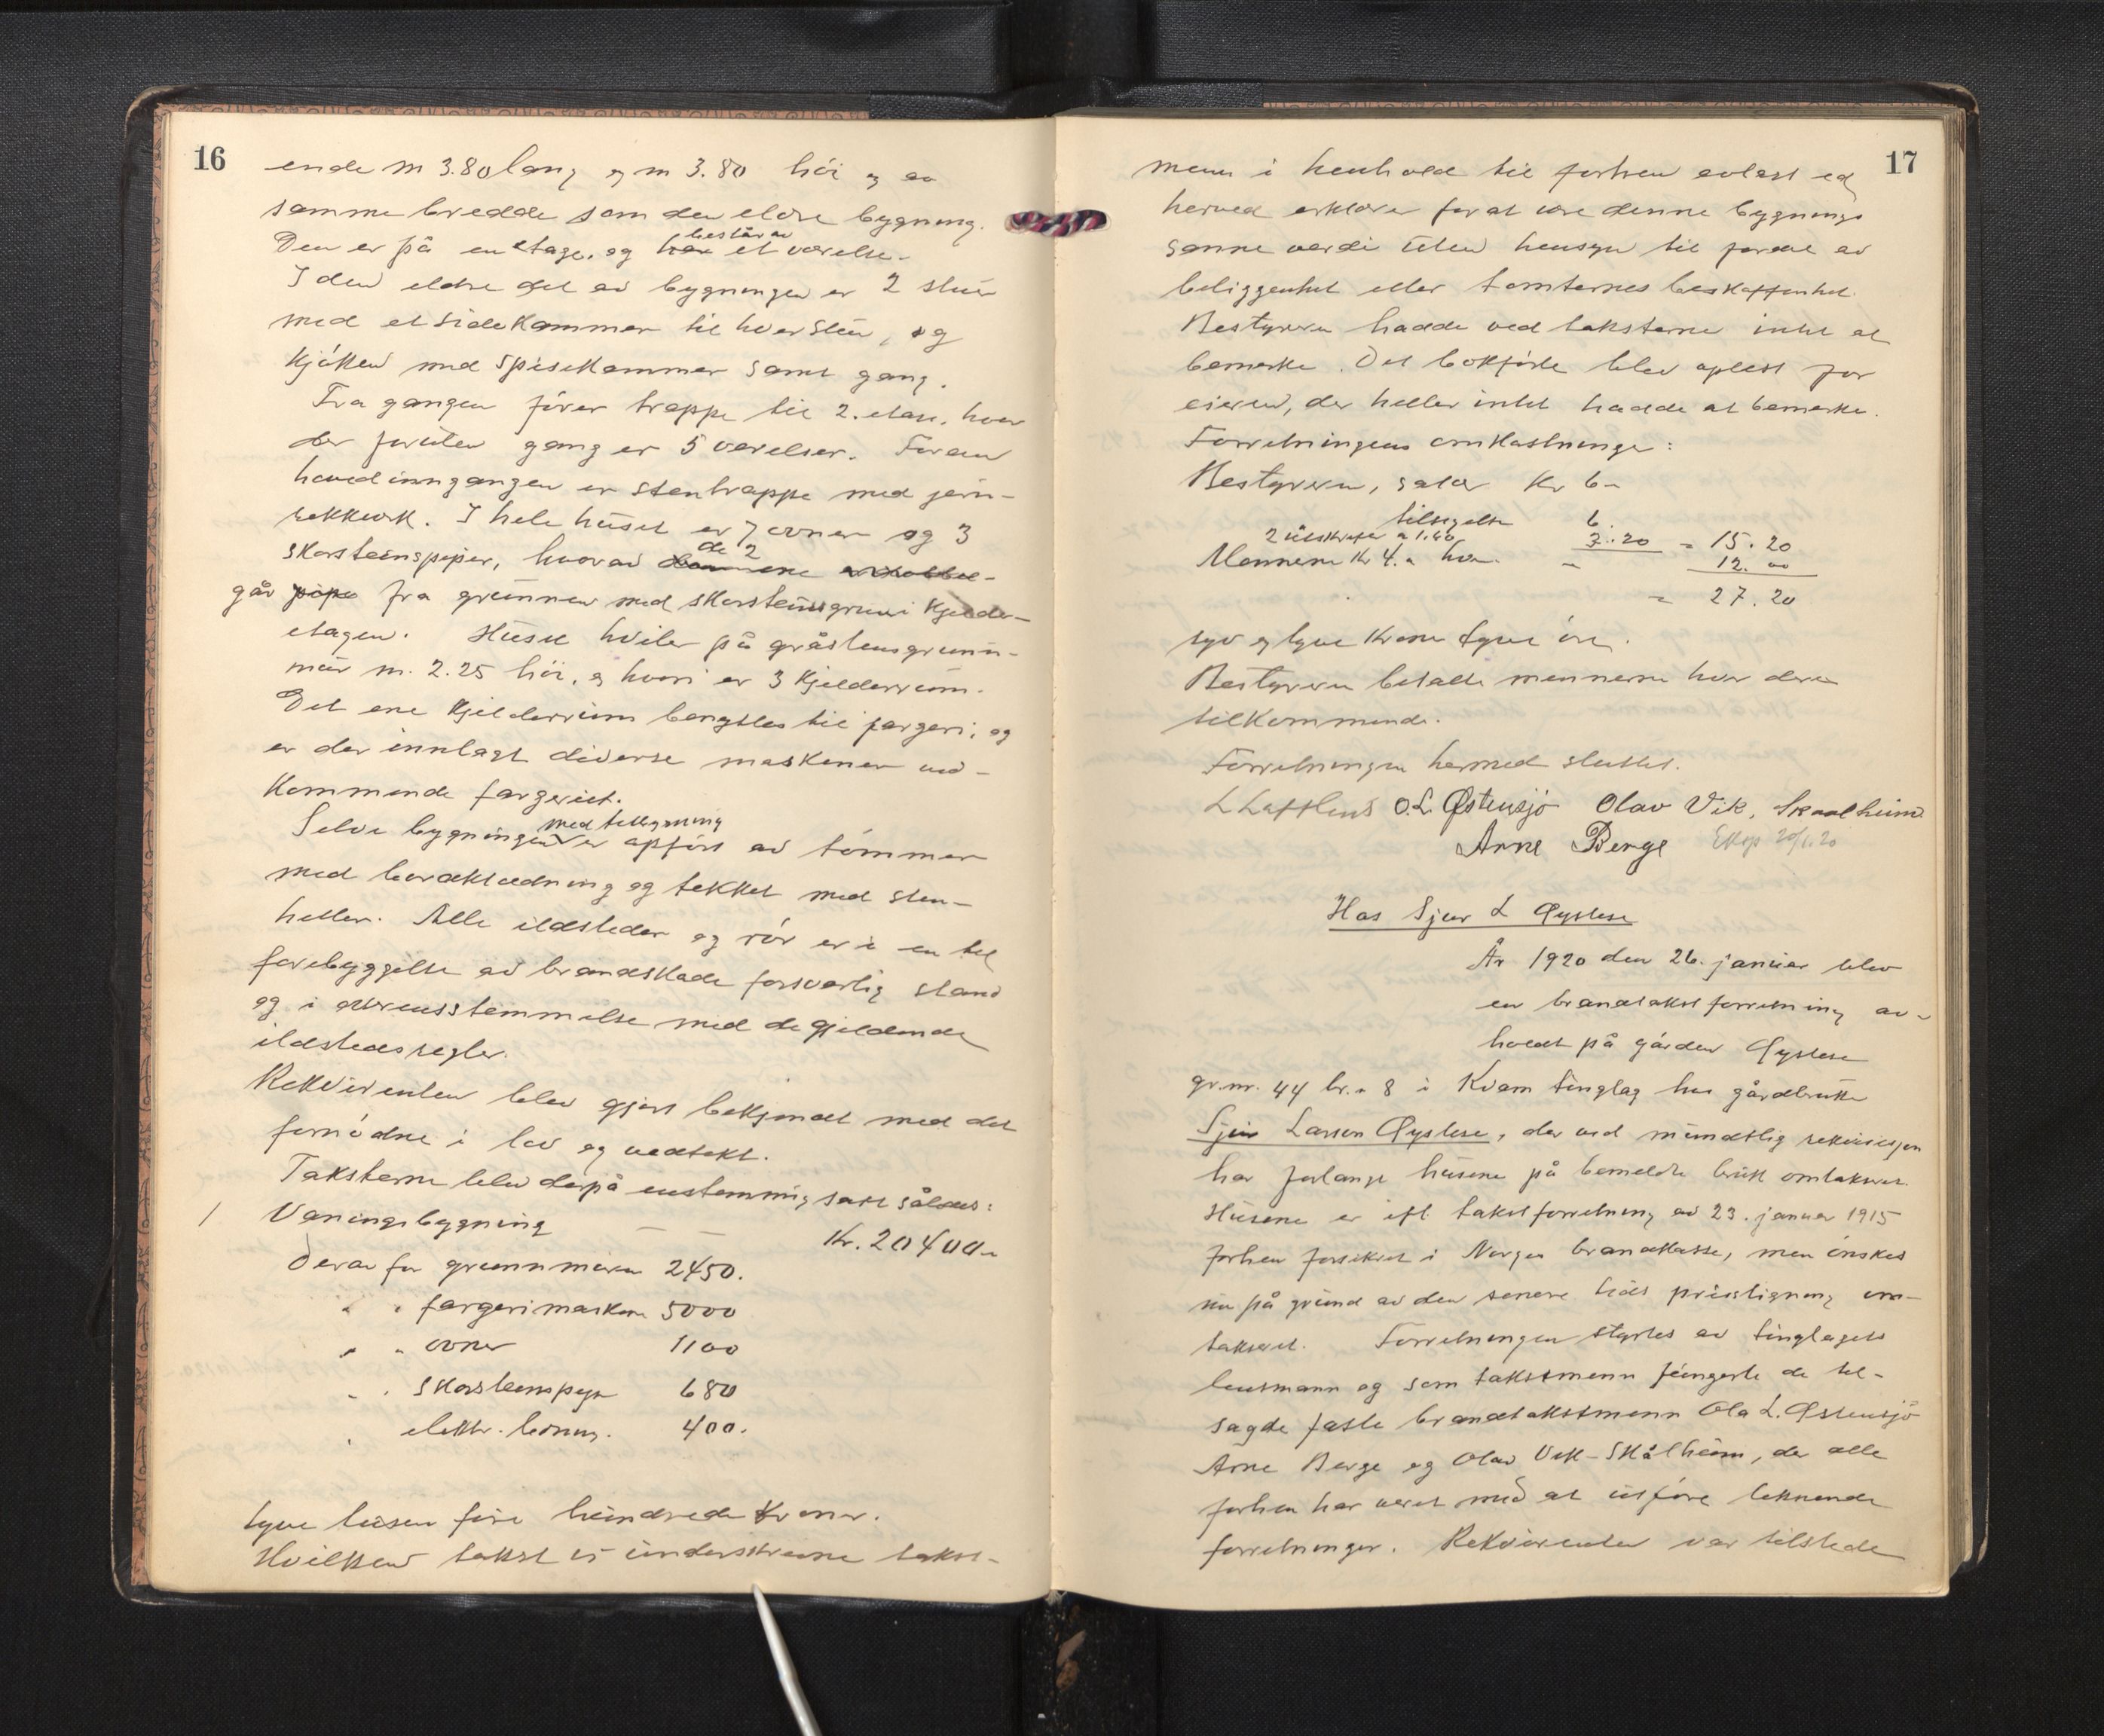 16
ende m 3.80 lang og m 3.80 høi og av
samme bredde som den eldre bygning.
består av
Den er på en etage, og har et værelse.
I den eldre del av bygningen er 2 stuer
med et sidekammer til hver stue, og
kjøkken med spisekammer samt gang.
Fra gangen fører trappe til 2. etage, hvor
der foruten gang er 5 værelser. Foran
hovedinngangen er stentrappe med jern-
rekkverk. I hele huset er 7 ovner og 3
de 2
skorsteinspiper, hvorav
går pipe fra grunnen med skorsteinsgrue i kjelder-
etagen. Huset hviler på gråstensgrunn-
mur m. 2.25 høi, og hvori er 3 kjelderrum.
Det ene kjelderrum benyttes til fargeri, og
er der innlagt diverse maskiner ved-
kommende fargeriet.
med tilbygning
Selve bygningen er opført av tømmer
med bordklædning og tekket med sten-
heller. Alle ildsteder og rør er i en til
forebyggelse av brandskade forsvarlig stand
og i overensstemmelse med de gjeldende
ildstedsregler.
Rekvirenten blev gjort bekjendt med det
fornødne i lov og vedtekt.
Taksterne blev derpå enstemmig satt således:
1 Vaningsbygning — Kr. 20400.-
Derav for grunnmuren 2450.
" " fargerimaskiner 5000
" " ovner 1100
" " skorsteinspiper 680
" elektr. ledning. 400.
tyve tusen fire hundrede kroner.
Hvilken takst vi underskrevne takst-
17
menn i henhold til forhen avlagt ed
herved erklærer for at være denne bygnings
sanne verdi uten hensyn til fordel av
beliggenhet eller tomternes beskaffenhet.
Bestyreren hadde ved taksterne intet at
bemerke. Det bokførte blev oplest for
eieren, der heller intet hadde at bemerke.
Forretningens omkostninger:
Bestyreren, salær Kr 6-
tilsigelse 6.
2 utskrifter a 1.60 3.20 = 15.20
Mennene Kr 4. a hver. " 12.00
= 27.20
syv og tyve kroner tyve øre.
Bestyreren betalte mennerne hver deres
tilkommende.
Forretningen hermed sluttet.
O. L. Østensjø Olav Vik, Skaalheim
Arne Berge Eksp 20/1.20
Hos Sjur L Øystese
År 1920 den 26. januar blev
en brandtakstforretning av-
holdt på gården Øystese
gr.nr. 44 br.n 8 i Kvam tinglag hos gårdbruker
Sjur Larsen Øystese, der ved mundtlig rekvisisjon
har forlangt husene på bemeldte bruk omtaksert.
Husene er ifl. takstforretning av 23. januar 1915
forhen forsikret i Norges brandkasse, men ønskes
nu på grund av den senere tids prisstigning om-
taksert. Forretningen styrtes av tinglagets
lensmann og som takstmenn fungerte de til-
sagde faste brandtakstmenn Ola L. Østensjø
Arne Berge og Olav Vik-Skålheim, der alle
forhen har været med at utføre liknende
forretninger. Rekvirenten var tilstede